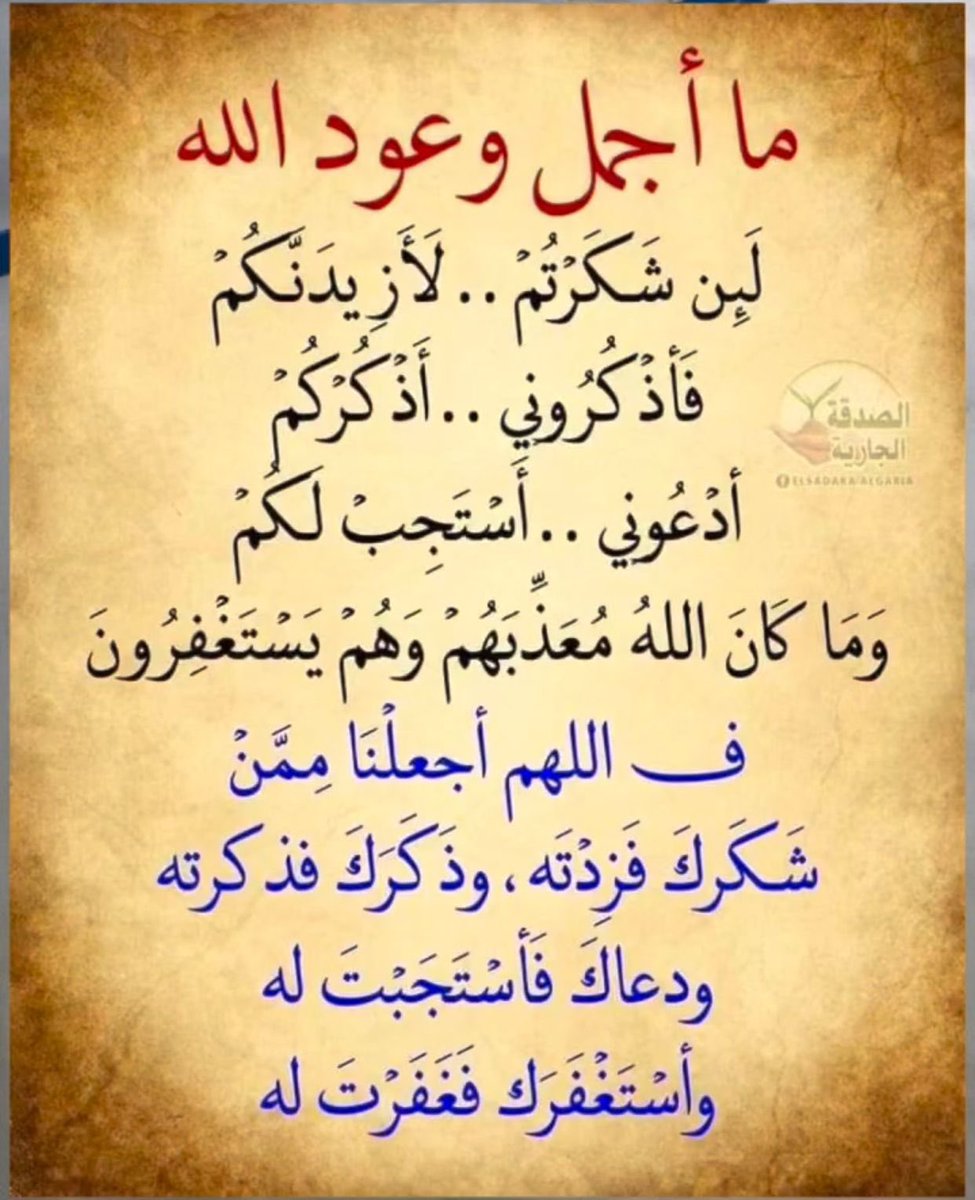 ما أجمل وعود الله
لَئِن شَكَرْتُمْ .. لَأَزِيدَنَّكُمْ
فَأذْكُرُونِي .. أَذْكُرْكُمْ
أدْعُونِي .. أَسْتَجِبْ لَكُمْ
وَمَا كَانَ اللهُ مُعَذِّبَهُمْ وَهُمْ يَسْتَغْفِرُونَ
ف اللهم أجعلْنَا مِمَّنْ
شَكَركَ فَزِدْتَه، وذَكَرَكَ فذكرته
ودعاكَ فَأسْتَجَبْتَ له
وأسْتَغْفَرَك فَغَفَرْتَ له
الصدقة
الجارية
ELSADAKA ALGARIA